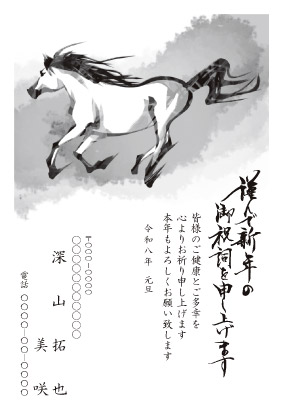 謹んで新年の
御祝詞を申し上げます
皆様のご健康とご多幸を
心よりお祈り申し上げます
本年もよろしくお願い致します
令和八年　元旦
〒○○○-○○○○
○○○○○○○○○○
深山拓也
美咲
電話　○○○○-○○-○○○○